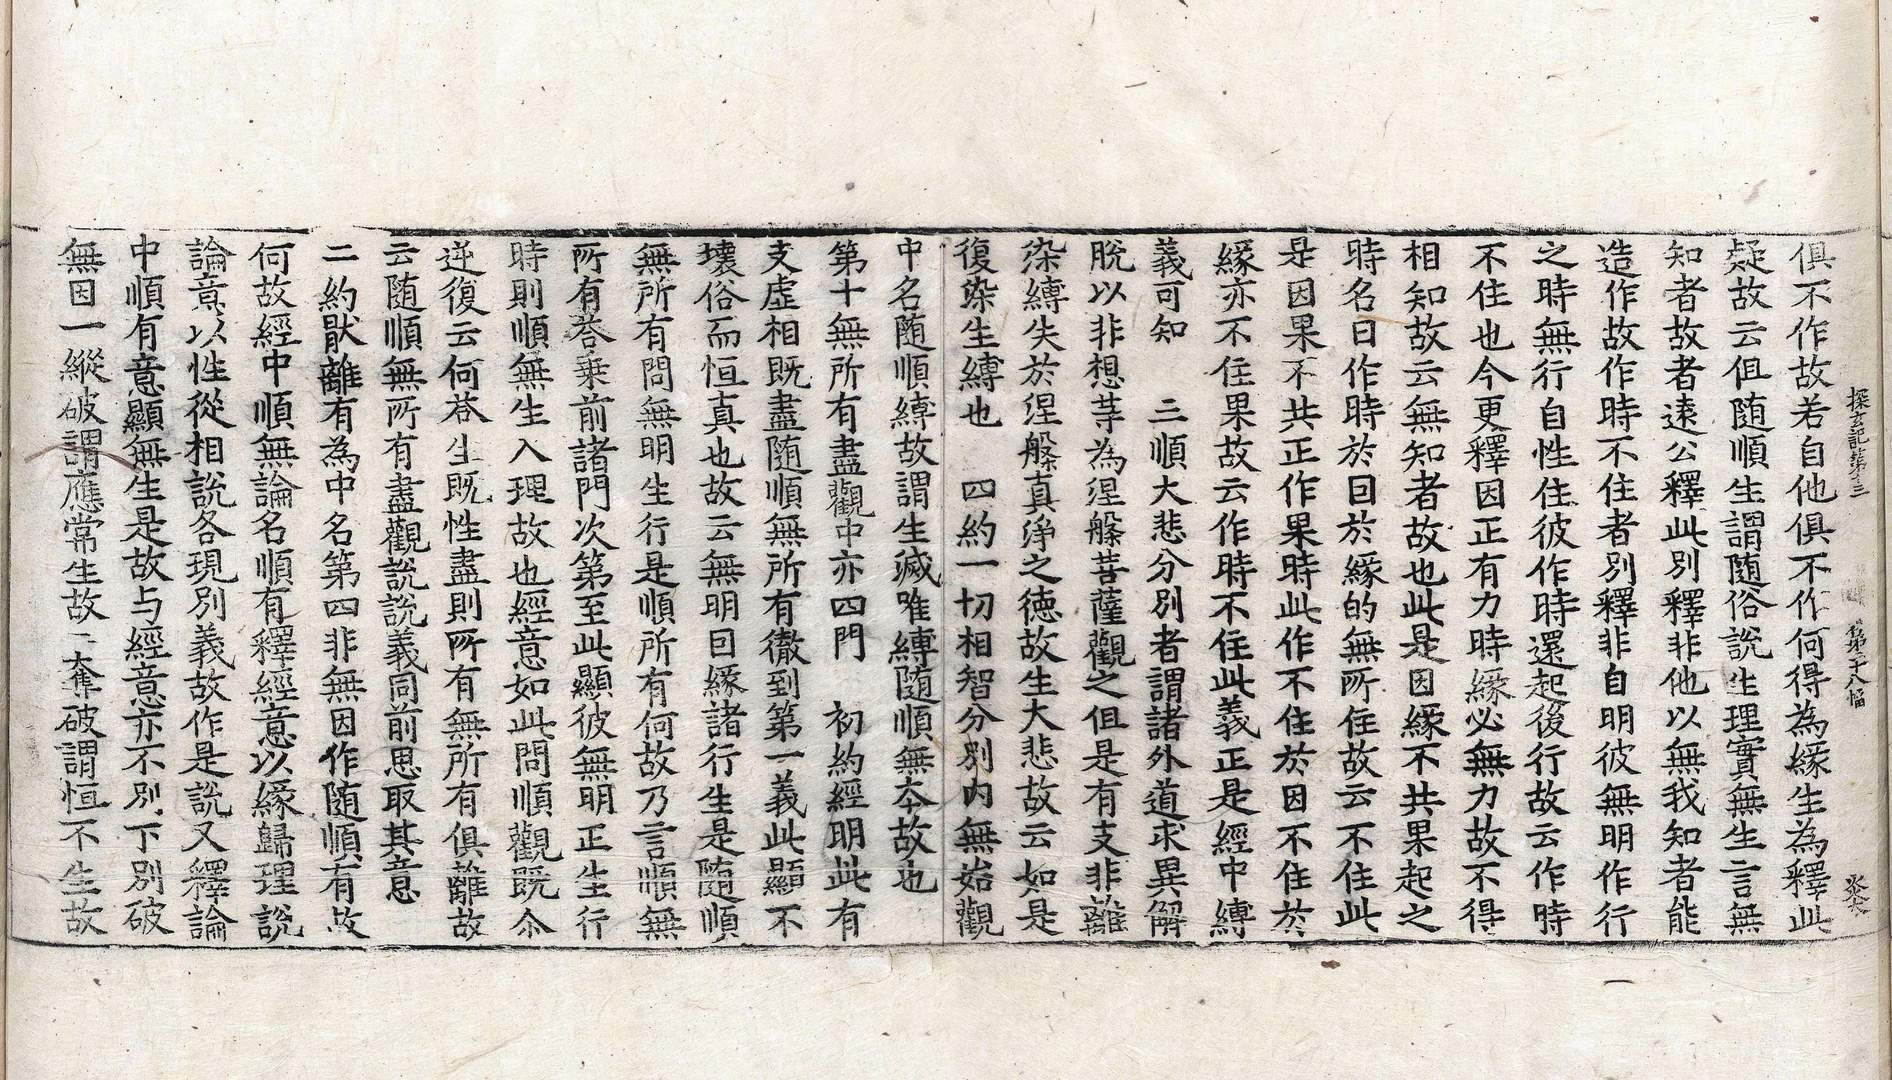 探玄記第十三　　第二十八幅
俱不作故若自他俱不作何得為緣生為釋此
疑故云但随順生謂随俗說生理實無生言無
知者故者遠公釋此別釋非他以無我知者能
造作故作時不住者別釋非自明彼無明作行
之時無行自性住彼作時還起後行故云作時
不住也今更釋因正有力時緣必無力故不得
相知故云無知者故也此是因緣不共果起之
時名曰作時於因於緣的無所住故云不住此
是因果不共正作果時此作不住於因不住於
緣亦不住果故云作時不住此義正是經中縛
義可知　三順大悲分別者謂諸外道求異解
脫以非想䓁為涅槃菩薩觀之但是有支非離
染縛失於涅槃真淨之徳故生大悲故云如是
復染生縛也　四約一切相智分別内無始觀
中名随順縛故謂生滅唯縛随順無夲故也
第十無所有盡觀中亦四門　初約經明此有
支虛相既盡随順無所有徹到第一義此顯不
壞俗而恒真也故云無明因緣諸行生是随順
無所有問無明生行是順所有何故乃言順無
所有荅乗前諸門次第至此顯彼無明正生行
時則順無生入理故也經意如此問順觀既尒
逆復云何荅生既性盡則所有無所有俱離故
云随順無所有盡觀說說義同前思取其意
二約猒離有為中名第四非無因作随順有故
何故經中順無論名順有釋經意以緣歸理說
論意以性從相說各現別義故作是說又釋論
中順有意顯無生是故与經意亦不別下別破
無因一縱破謂應常生故二奪破謂恒不生故